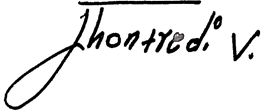 Jhonfred.° V.